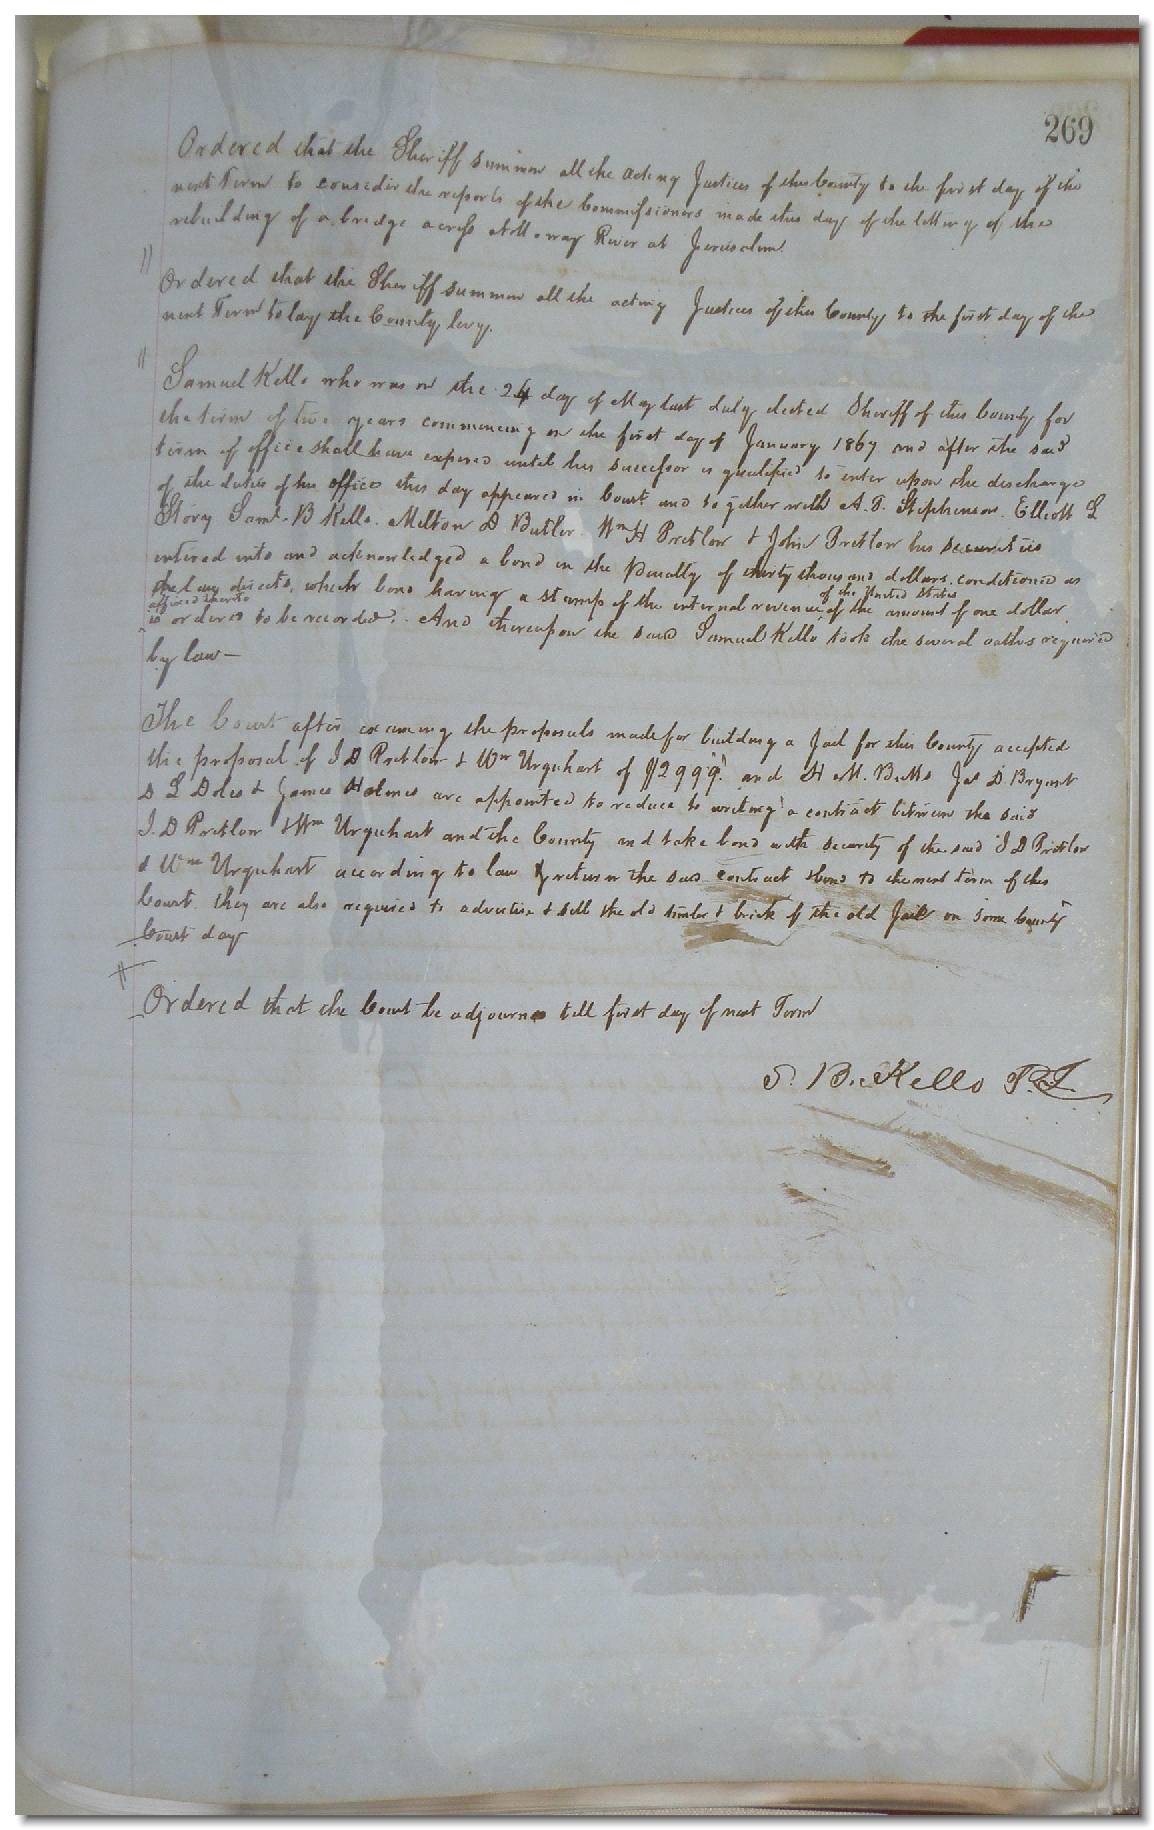 269
Ordered that the Sheriff summon all the acting Justices of this County to the first day of the
next Term to consider the reports of the Commissioners made this day of the letting of the
rebuilding of a bridge across Nottoway River at Jerusalem
"
Ordered that the Sheriff summon all the acting Justices of this County to the first day of the
next Term to lay the County levy.
"
Samuel Kello who was on the 24 day of May last duly elected Sheriff of this County for
the term of two years commencing on the first day of January 1867 and after the said
term of office shall have expired until his successor is qualified to enter upon the discharge
of the duties of the office this day appeared in Court and together with A. T. Stephenson. Elliott L
Story Saml. B Kello. Melton D Butler. Wm H Pretlow & John Pretlow his securities
entered into and acknowledged a bond in the penalty of thirty thousand dollars, conditioned as
the law directs, which bond having a stamp of the internal revenue of the United States of the amount of one dollar
affixed thereto
is ordered to be recorded. And thereupon the said Samuel Kello took the several oaths required
by law —
The Court after examining the proposals made for building a Jail for this County accepted
the proposal of J D Pretlow & Wm Urquhart of $2999. and H M. Butts Jas D. Bryant
D L Doles & James Holmes are appointed to reduce to writing a contract between the said
J. D Pretlow & Wm Urquhart and the County and take bond with security of the said J D Pretlow
& Wm Urquhart according to law & return the said contract & bond to the next term of this
Court. they are also required to advertise & sell the old timber & brick of the old Jail on some County
Court day
"
Ordered that the Court be adjourned till first day of next Term
S. B. Kello P.J.